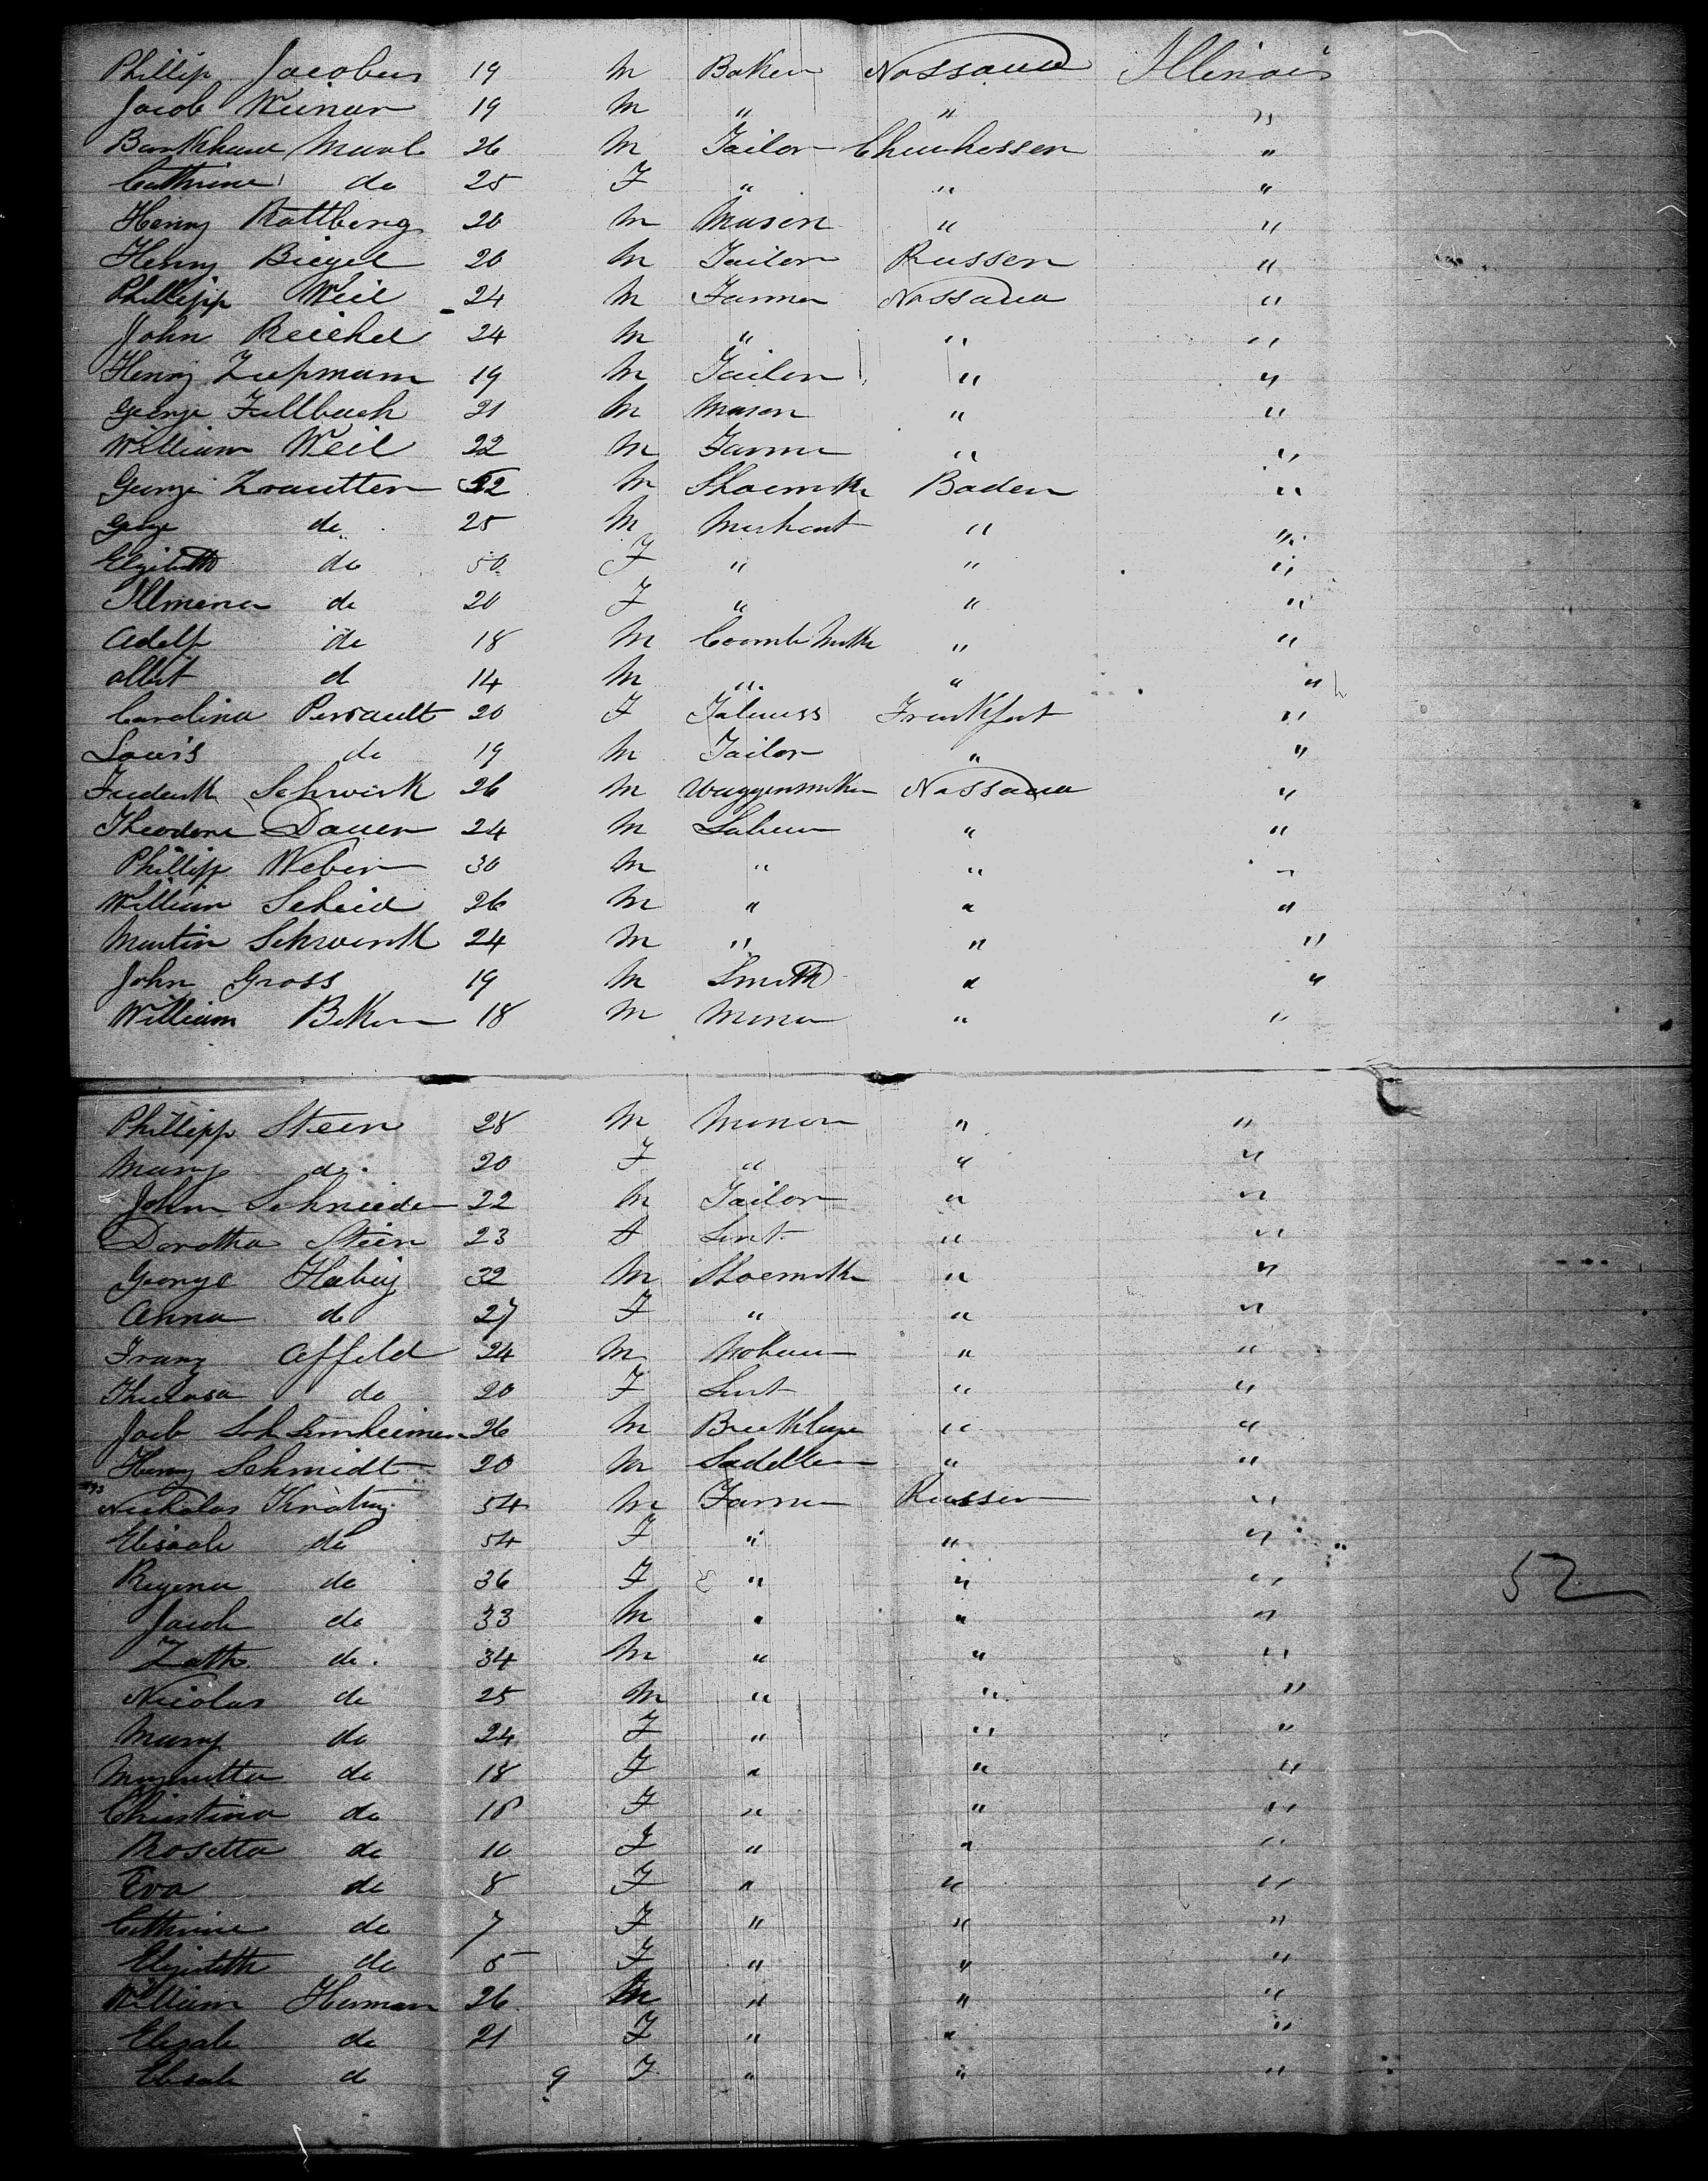 Phillip Jacobus 19 M Baker Nassau Illinois
Jacob Weiner 19 M " " "
Burkhard Maul 26 M Tailor Churhessen "
Cathrine do 25 F " " "
Henry Rottberg 20 M Mason " "
Henry Biegel 20 M Tailor Russen "
Phillipp Weil 24 M Farmer Nassau "
John Reichel 24 M " " "
Henry Zupmann 19 M Tailor " "
George Fullbach 21 M Mason " "
William Weil 22 M Farmer " "
George Trautter 52 M Shoemker Baden "
George do 25 M Merhant " "
Elizibeth do 50 F " " "
Illmena do 20 F " " "
Adolf do 18 M Coomb Mker " "
Albert d 14 M " " "
Carolina Perrault 20 F Frankfort "
Louis do 19 M Tailor " "
Frederik Schwink 26 M Waggenmker Nassau "
Theodore Dauer 24 M Laburer " "
Phillipp Weber 30 M " " "
William Scheid 26 M " " "
Martin Schwenk 24 M " " "
John Gross 19 M Smith " "
William Beker 18 M Miner " "
Phillipp Stein 28 M Minor " "
Mary do 20 F " " "
John Schneider 22 M Tailor " "
Dorotha Stein 23 F Sert " "
George Habig 32 M Shoemker " "
Anna do 27 F " " "
Franz Affeld 24 M " "
Theresa do 20 F Sert " "
Jacob 26 M Bricklayer " "
Henry Schmidt 20 M Sadeller " "
Nickolas Kratny 54 M Farmer Russen "
Elisaab do 54 F " " "
Regena do 36 F " " "
Jacob do 33 M " " "
Zath do 34 M " " "
Nicolas do 25 M " " "
Mary do 24 F " " "
Magretta do 18 F " " "
Christina do 18 F " " "
Rosetta do 10 F " " "
Eva do 8 F " " "
Cathrine do 7 F " " "
Elizibeth do 5 F " " "
William Herman 26 M " " "
Elizab do 21 F " " "
Elisab d 9 F " " "
52